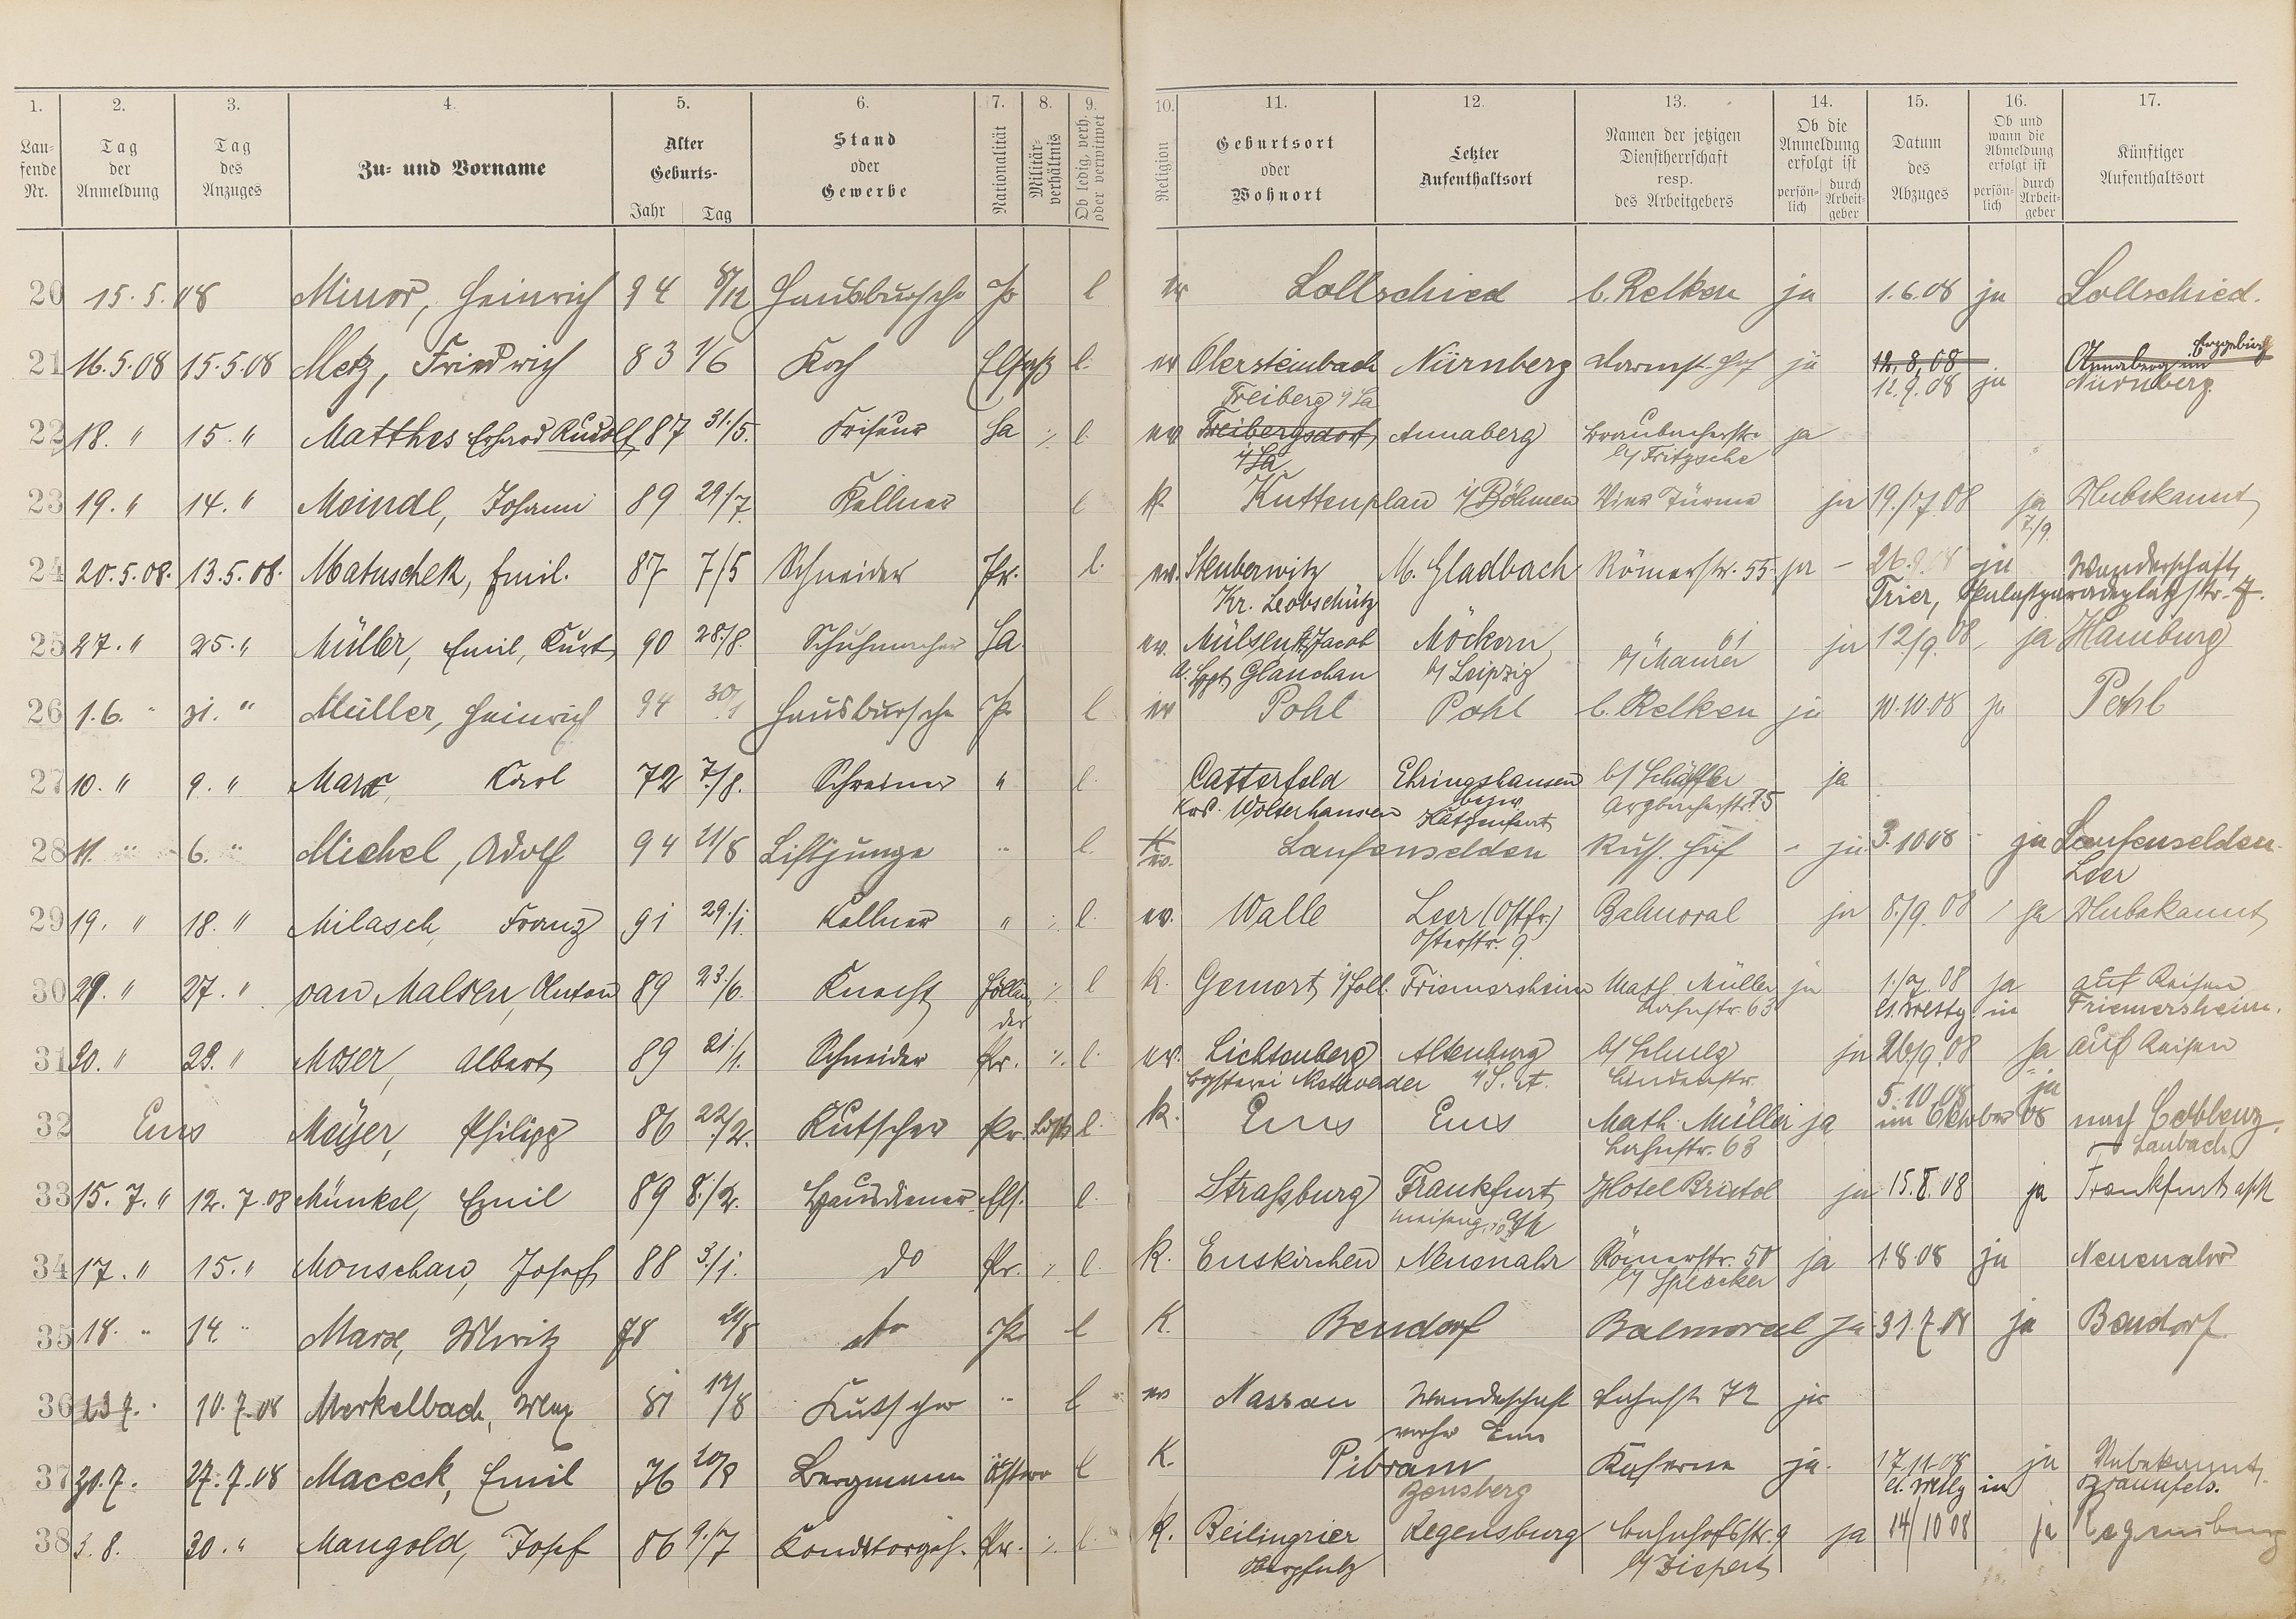 1. 2. 3. 4. 5. 6. 7. 8. 9. 10. 11. 12. 13. 14. 15. 16. 17.
Lau-fende Nr. Tag der Anmeldung Tag des Anzuges Zu- und Vorname Alter Geburts- Jahr Tag Stand oder Gewerbe Nationalität Militär-verhältnis Ob ledig, verh. oder verwitwet Religion Geburtsort oder Wohnort Letzter Aufenthaltsort Namen der jetzigen Dienstherrschaft resp. des Arbeitgebers Ob die Anmeldung erfolgt ist persön-lich durch Arbeit-geber Datum des Abzuges Ob und wann die Abmeldung erfolgt ist persön-lich durch Arbeit-geber Künftiger Aufenthaltsort
20 15.5.08 Minor, Heinrich 94 8/12 Hausbursche Pr l ev Lollschied b. Relken ja 1.6.08 ja Lollschied.
21 16.5.08 15.5.08 Metz, Friedrich 83 1/6 Koch Elsaß l. ev Obersteinbach Nürnberg Darmst. Hof ja 12.8.08 Annaberg im Erzgebirg
12.9.08 ja Nürnberg.
Freiberg i/Sa
22 18. " 15. " Matthes Erhard Rudolf, 87 31./5. Friseur Sa ./. l. ev Freibergsdorf Annaberg Braubacherstr. ja
i/Sa b/ Fritzsche
23 19. " 14. " Meindl, Johann 89 29/7. Kellner l k. Kuttenplan i/ Böhmen Vier Türme ja 19./7.08 ja Unbekannt
7./9.
24 20.5.08. 13.5.08. Matuschek, Emil. 87 7/5 Schneider Pr. l. ev. Steuberwitz M. Gladbach Römerstr. 55. ja - ja Wanderschaft
Kr. Leobschütz Trier,
25 27. " 25. " Müller, Emil, Kurt 90 28./8. Schuhmacher Sa. ev. Mülsen St. Jacob Möckern " 61 ja 12/9.08 ja Hamburg
Glauchau b/ Leipzig b/ Maurer
26 1.6. " 31. " Müller, Heinrich 94 30/1 Hausbursche Pr l ev Pohl Pohl b. Relken ja 10.10.08 ja Pohl
27 10. " 9. " Marx, Karl 72 7./8. Schreiner " l. Catterfeld Ehringshausen b/ Schäffer ja
Wolterhausen bezw. Katzenfurt Arzbacherstr. 75
28 11. " 6. " Michel, Adolf 94 21/8 Liftjunge " l. ev. Laufenselden Russ. Hof - ja 3.10 08 ja Laufenselden.
Leer
29 19. " 18. " Milasch, Franz 91 29./1. Kellner " ./. l. ev. Walle Leer (Ostfr.) Balmoral ja 8./9.08 ja Unbekannt
Osterstr. 9
30 29. " 27. " van Malsen, Anton 89 23./6. Knecht Hollän ./. l k. Gemert i/Holl. Friemersheim Math Müller ja 1./9.08 ja auf Reisen
der Lahnstr. 63 in Friemersheim.
31 30. " 29. " Moser, Albert 89 21./1. Schneider Pr. ./. l. ev. Lichtenberg Altenburg b/ Schulz ja 26/9.08 ja auf Reisen
i/S.A. Lindenstr.
5.10.08 ja
32 Ems Meyer, Philipp 86 22./2. Kutscher Pr. l. k. Ems Ems Math. Müller ja im Oktober 08 nach Coblenz.
Lahnstr. 63 Laubach
33 15.7. " 12.7.08 Münkel, Emil 89 8./2. Hausdiener Els. l. Straßburg Frankfurt Hotel Bristol ja 15.8.08 ja Frankfurt a/M
a/M
34 17. " 15. " Monschau, Josef 88 3./1. do Pr. ./. l. k. Euskirchen Neuenahr Römerstr. 50 ja 1.8.08 ja Neuenahr
b/ Splecker
35 18. " 14. " Marx, Moritz 78 21/8 do Pr l K. Bendorf Balmoral ja 31.7.08 ja Bendorf
36 23.7. " 10.7.08 Merkelbach, Max 81 12/8 Kutscher " l ev Nassau Wanderschaft Lahnstr 72 ja
vorher Ems
37 31.7. 27.7.08 Maceck, Emil 76 20/8 Bergmann Österr l K. Pibram Kaserne ja. 17.11.08 ja Unbekannt.
in Braunfels.
38 3.8. 30. " Mangold, Josef 86 9./7 Konditorgeh. Pr. ./. l. k. Beilingrier Regensburg Bahnhofstr. 9 ja 14/10 08 ja Regensburg
Oberpfalz b/ Dispert